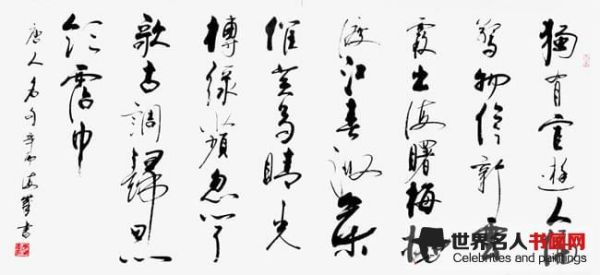 獨有宦遊人偏
驚物候新雲
霞出海曙梅柳
渡江春淑氣
催黄鳥晴光
轉綠蘋忽聞
歌古調歸思
欲霑巾
唐人名句 書
世界名人书画网
Celebrities and paintings